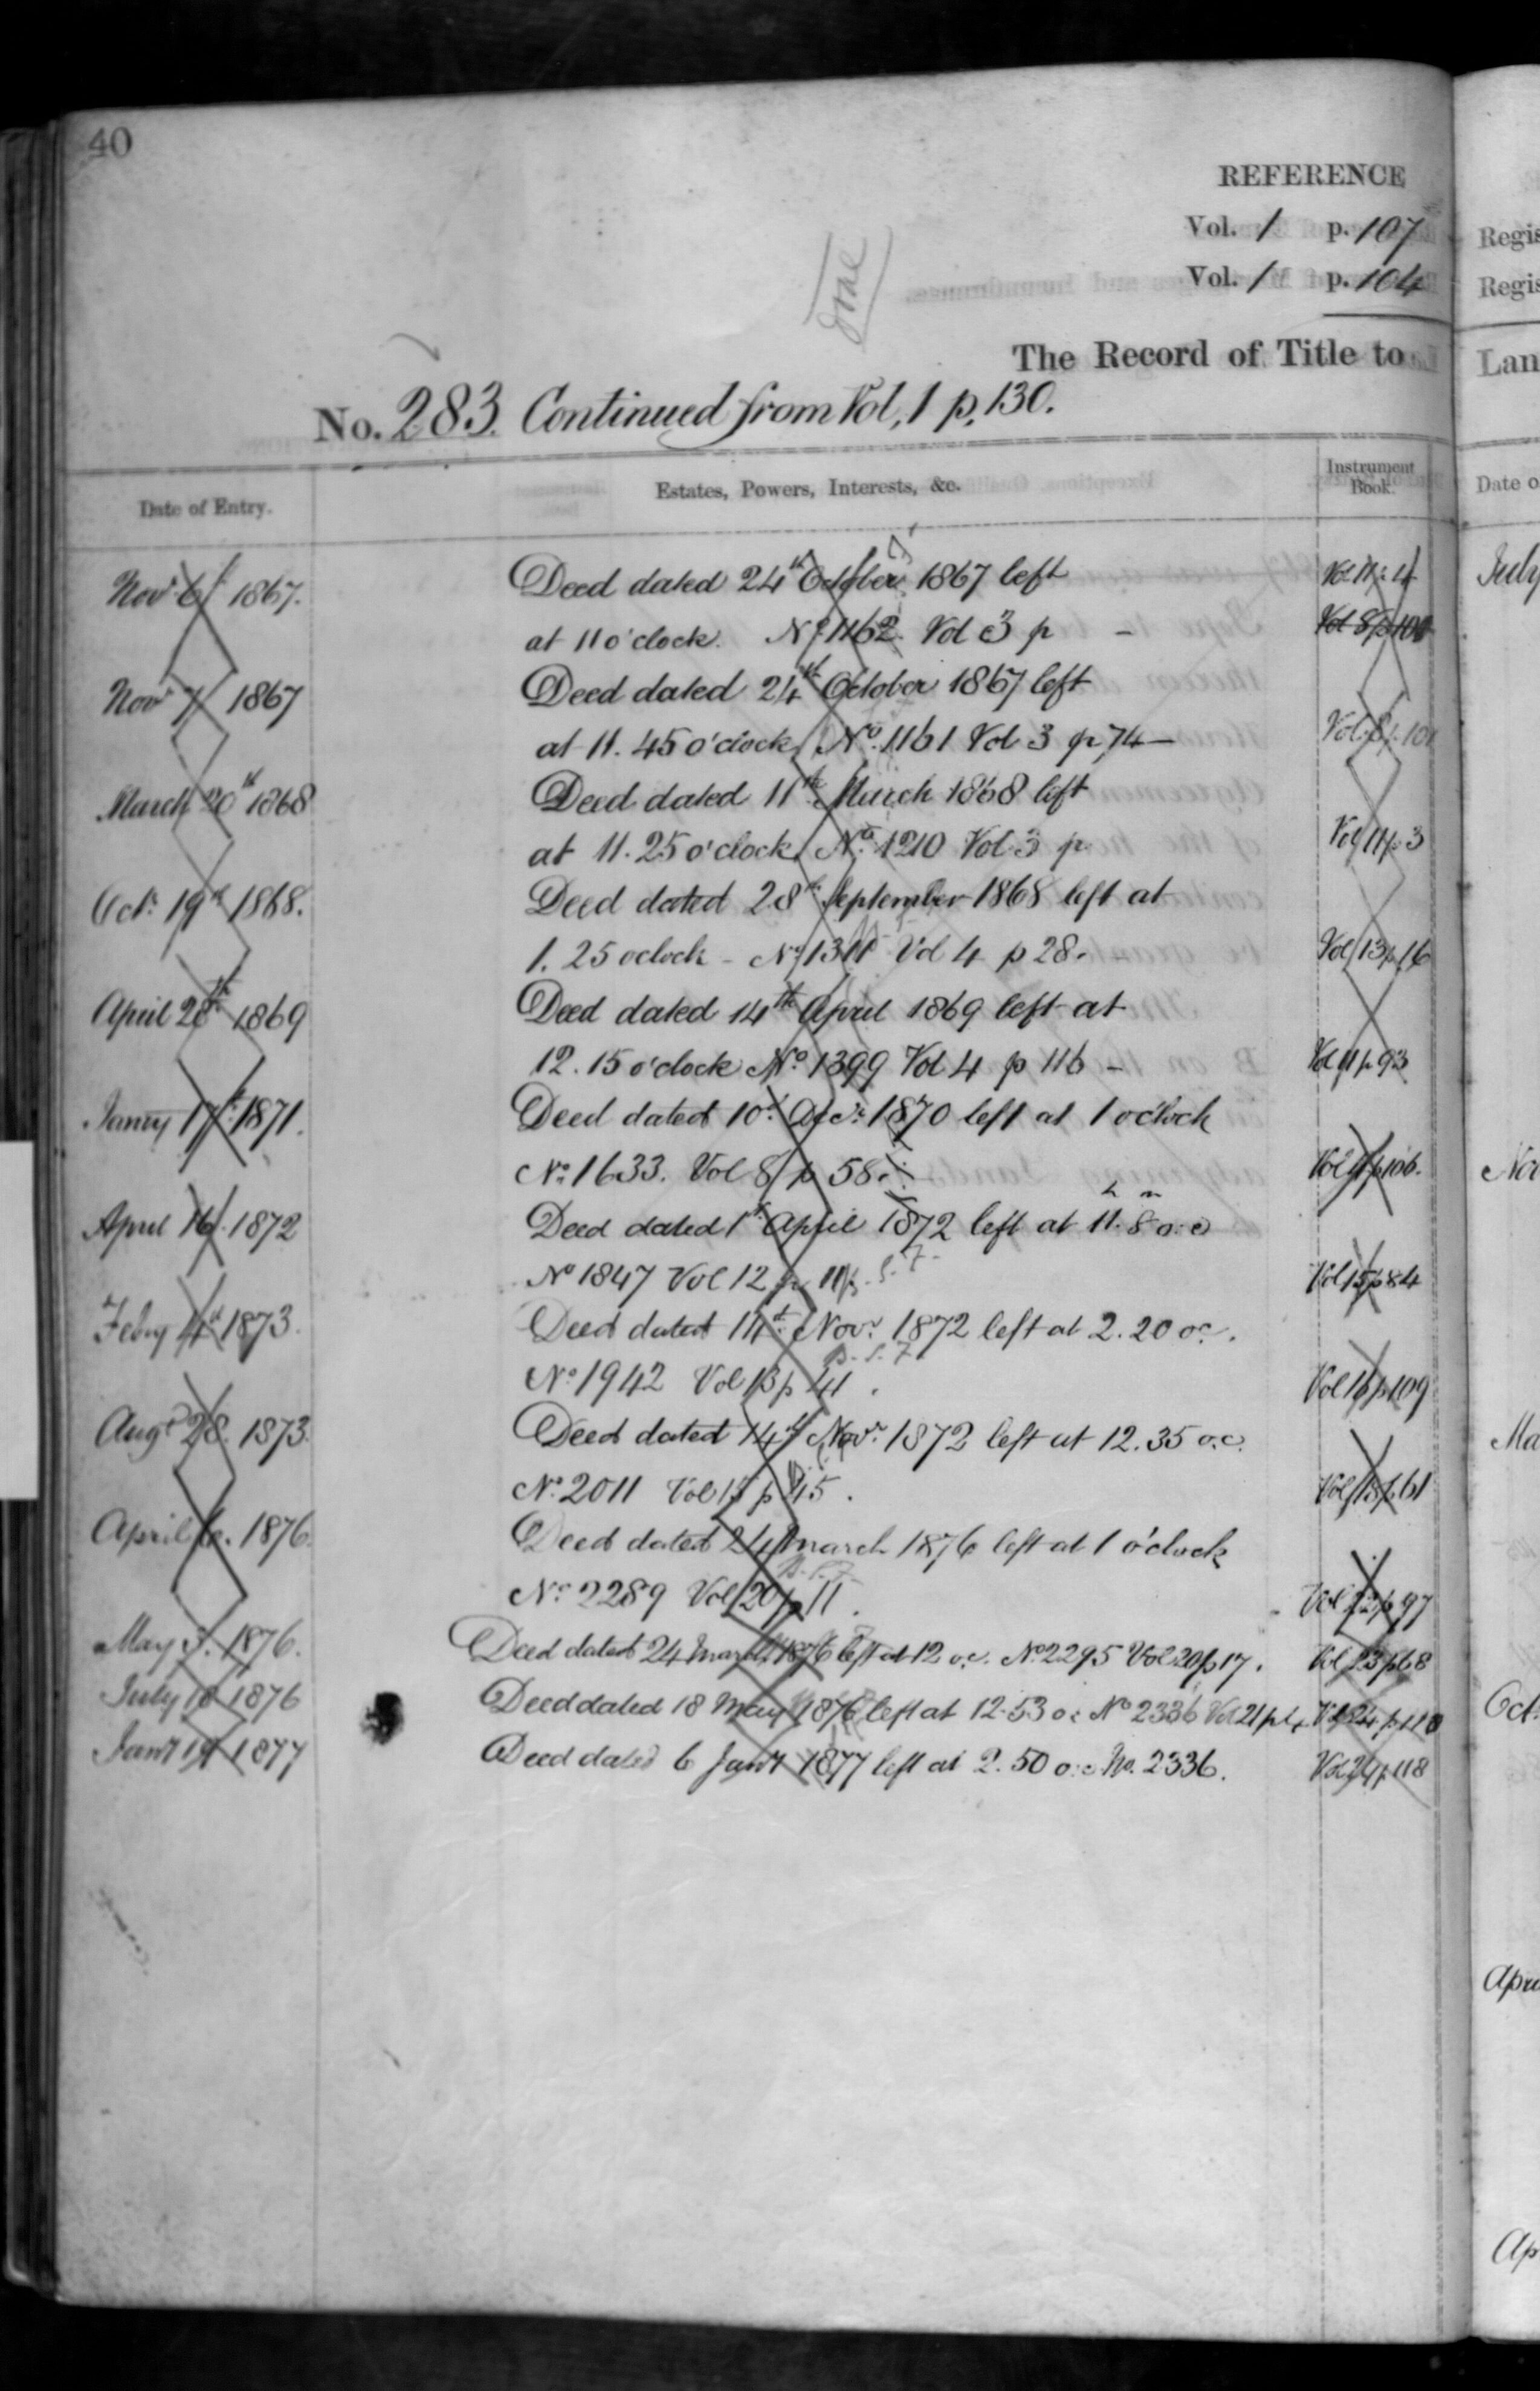 40
REFERENCE
Vol. 1 p. 107
Vol. 1 p. 104
done
The Record of Title to
No. 283. Continued from Vol, 1 p, 130.
Date of Entry. Estates, Powers, Interests, &c. Instrument Book.
Nov 6 1867. Deed dated 24th October 1867 left Vol 11 p 4
at 11 o'clock. No. 1162. Vol 3 p – Vol 8 p 100
Nov 7 1867 Deed dated 24th October 1867 left
at 11. 45 o'clock No. 1161 Vol 3 p 74 — Vol. 8 p. 101
March 20th 1868 Deed dated 11th March 1868 left
at 11. 25 o'clock No. 1210 Vol 3 p. Vol 11 p. 3
Oct: 19th 1868. Deed dated 28th September 1868 left at
1. 25 oclock - No 1311 Vol 4 p 28. Vol 13 p 16
April 28th 1869 Deed dated 14th April 1869 left at
12. 15 o'clock No. 1399 Vol 4 p 116 – Vol 11 p 93
Janry 17th 1871. Deed dated 10th Decr. 1870 left at 1 o'clock
No. 1633. Vol 8 p 58. Vol 11 p 106.
April 16. 1872 Deed dated 1st April 1872 left at 11h. 8m o.c
No 1847 Vol 12 p Vol 15 p 84
Febry 4th 1873. Deed dated 14th Novr. 1872 left at 2. 20 oc.
No 1942 Vol 13 p 41. Vol 16 p 109
Augt 28. 1873. Deed dated 14th Novr. 1872 left at 12. 35 o.c.
No. 2011 Vol 15 p 45. Vol 18 p 61
April 6. 1876. Deed dated 24 March 1876 left at 1 o'clock
No. 2289 Vol 20 p 11. Vol 22 p 97
May 3. 1876. Deed dated 24 March 1876 left at 12 o.c. No 2295 Vol 20 p 17. Vol 23 p 68
July 18 1876 Deed dated 18 May 1876 left at 12.53 oc No 2336 Vol 21 p Vol 24 p 118
Jany 19 1877 Deed dated 6 Jany 1877 left at 2. 50 o.c No. 2336. Vol 24 p 118
Regis
Regis
Lan
Date o
July
Nov
Ma
Oct.
Apri
Ap